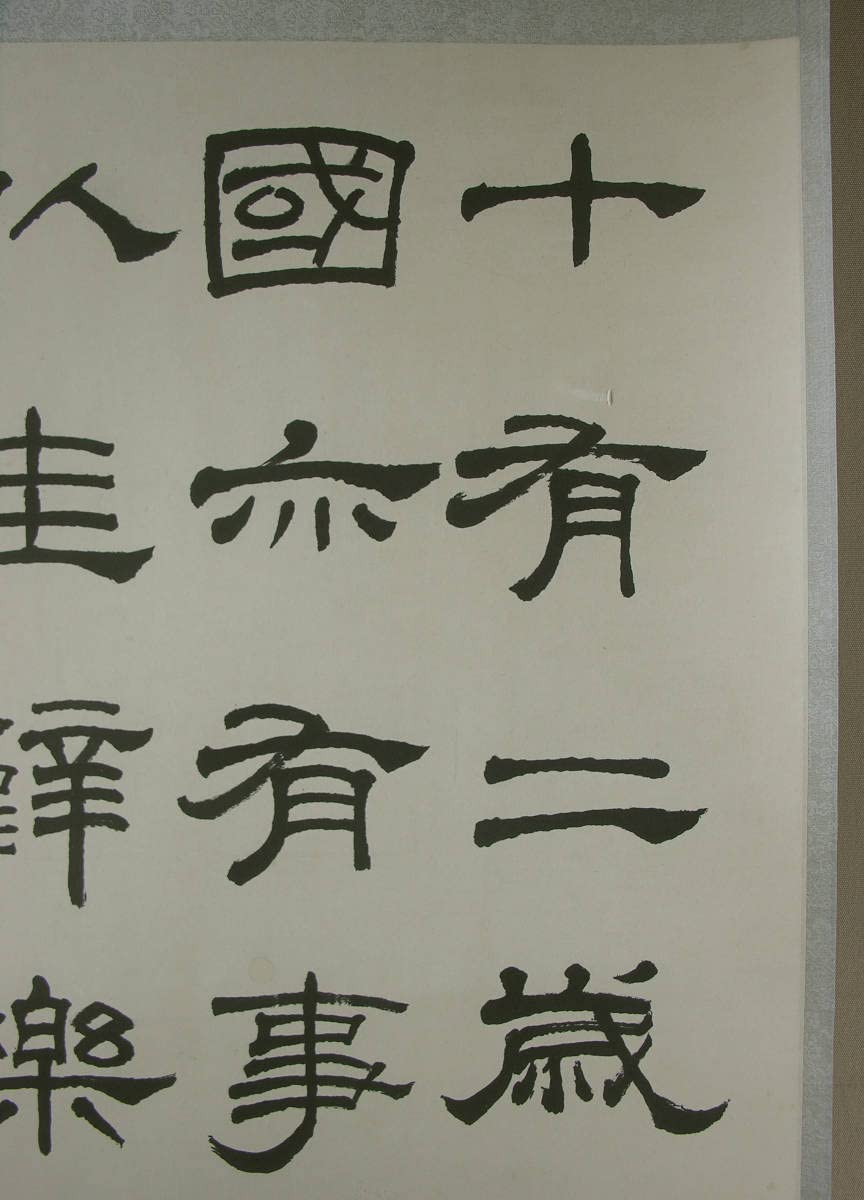 十有二歲
國亦有事
樂